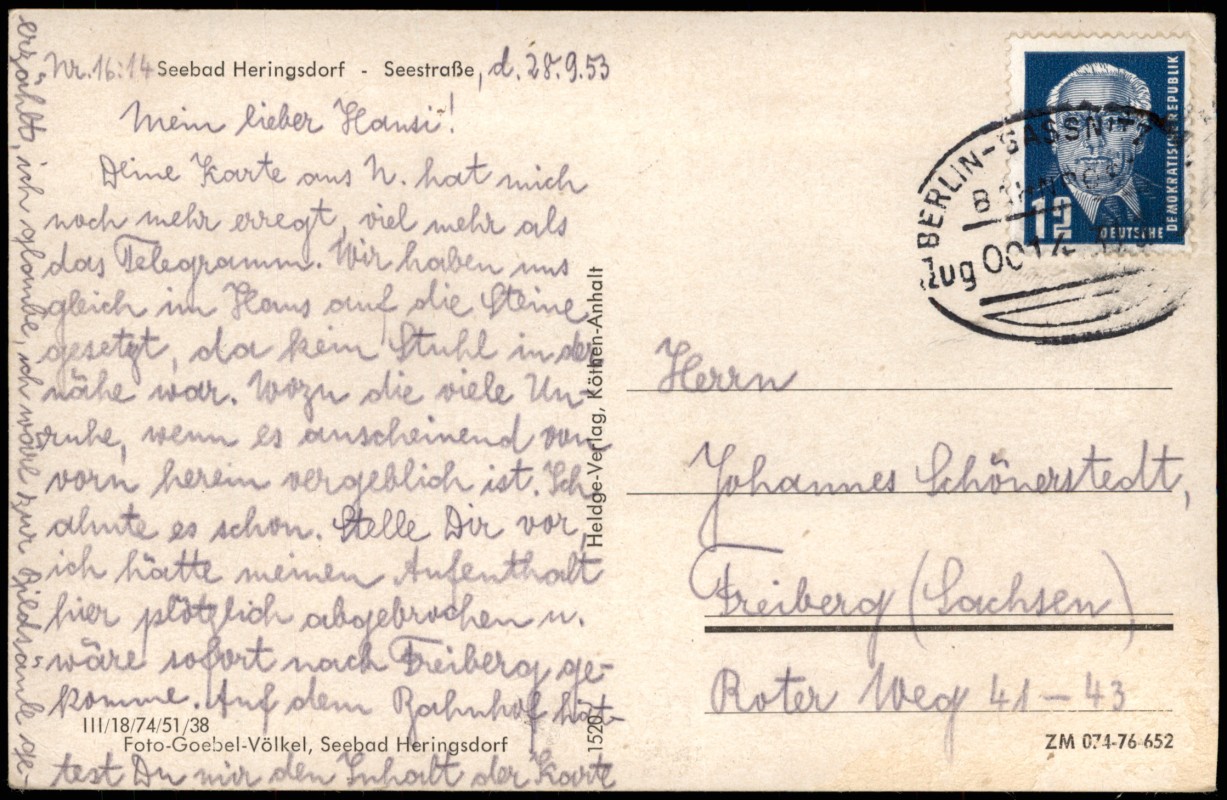 Nr. 16:14 Seebad Heringsdorf - Seestraße, d. 28.9.53
Mein lieber Hansi!
Deine Karte aus N. hat mich
noch mehr erregt, viel mehr als
das Telegramm. Wir haben uns
gleich im Haus auf die Steine
gesetzt, da kein Stuhl in der
nähe war. Wozu die viele Un-
ruhe, wenn es anscheinend von
vorn herein vergeblich ist. Ich
ahnte es schon. Stelle Dir vor,
ich hätte meinen Aufenthalt
hier plötzlich abgebrochen u.
wäre sofort nach Freiberg ge-
komme. Auf dem Bahnhof hät-
test Du mir den Inhalt der Karte
erzählt, ich glaube, ich wäre zur Bildsäule ge-
III/18/74/51/38
Foto-Goebel-Völkel, Seebad Heringsdorf
1520 Heldge-Verlag, Köthen-Anhalt
DEUTSCHE DEMOKRATISCHE REPUBLIK
12
BERLIN-SASSNITZ
Zug 0014
Herrn
Johannes Schönerstedt,
Freiberg (Sachsen)
Roter Weg 41-43
ZM 074-76-652